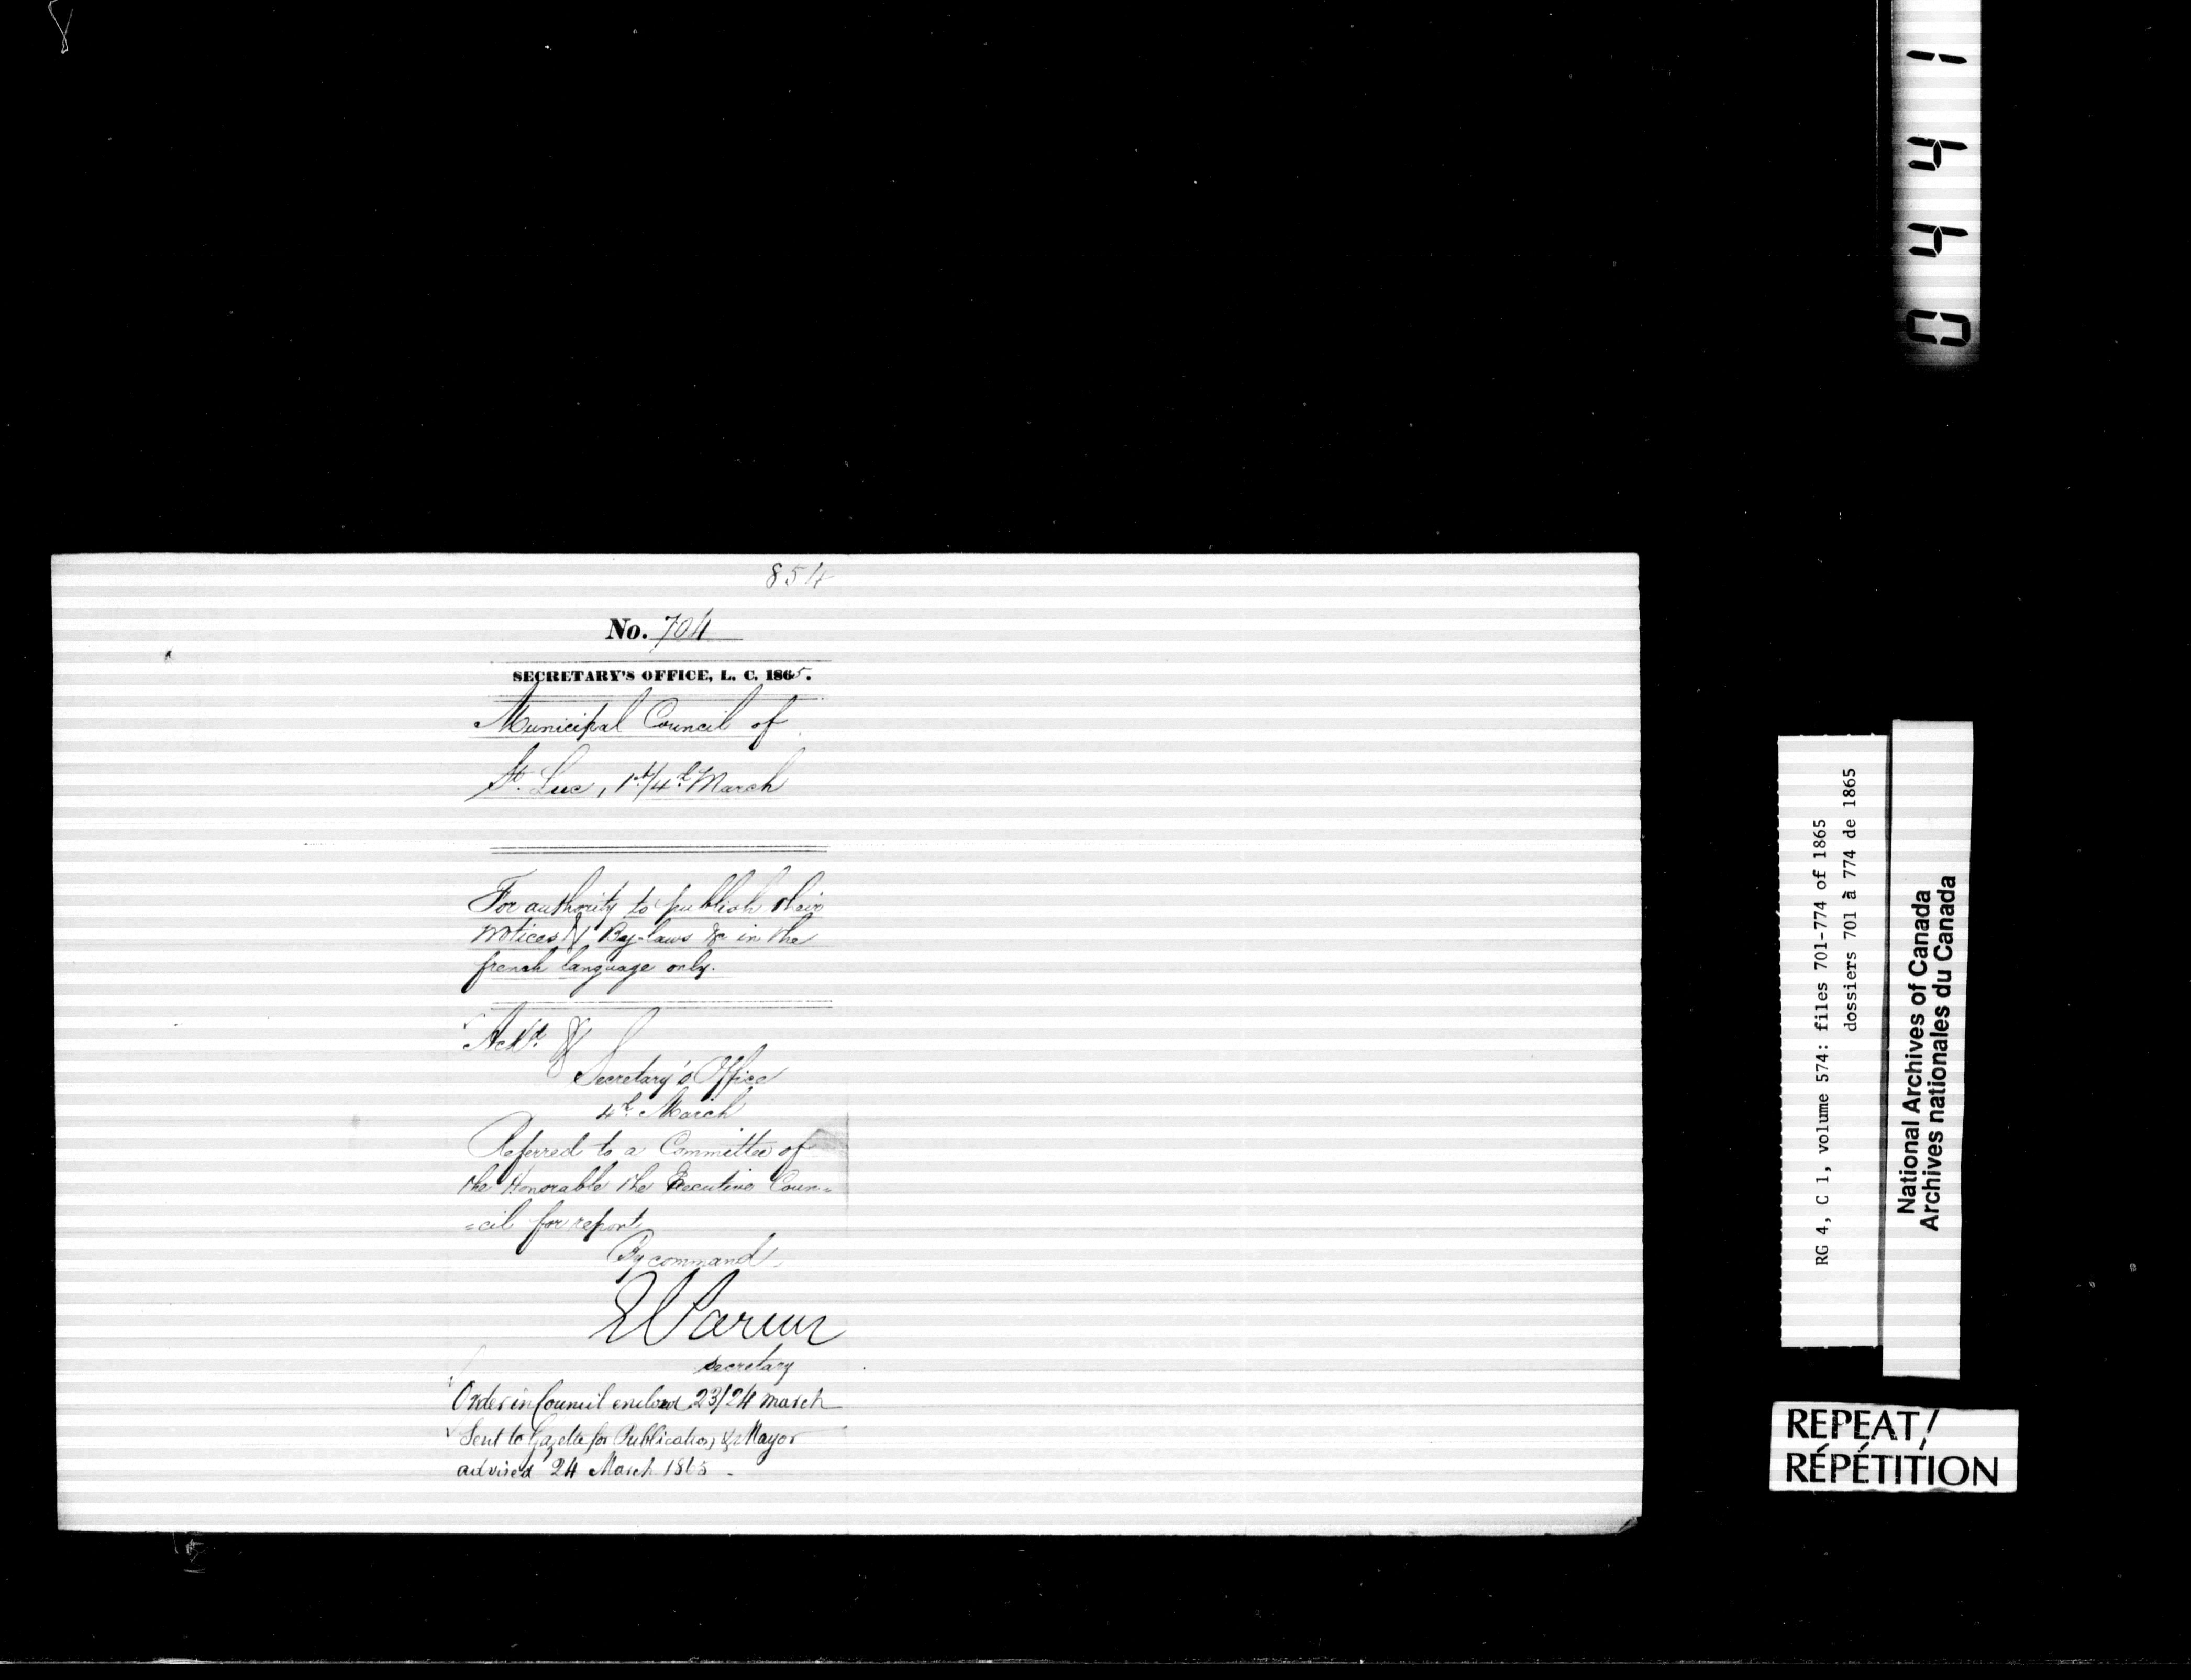 854
No. 704
SECRETARY'S OFFICE, L. C. 1865.
Municipal Council of
St. Luc, 1st/4th March
For authority to publish their
notices, By-laws &c in the
french language only.
Ackd.
Secretary's Office
4th March
Referred to a Committee of
the Honorable the Executive Coun=
=cil for report
By command
E Parent
secretary
Order in Council enclosed 23/24 march
Sent to Gazette for Publication, & Mayor
advised 24 March 1865 -
0441
RG 4, C 1, volume 574: files 701-774 of 1865
dossiers 701 à 774 de 1865
National Archives of Canada
Archives nationales du Canada
REPEAT/
RÉPÉTITION